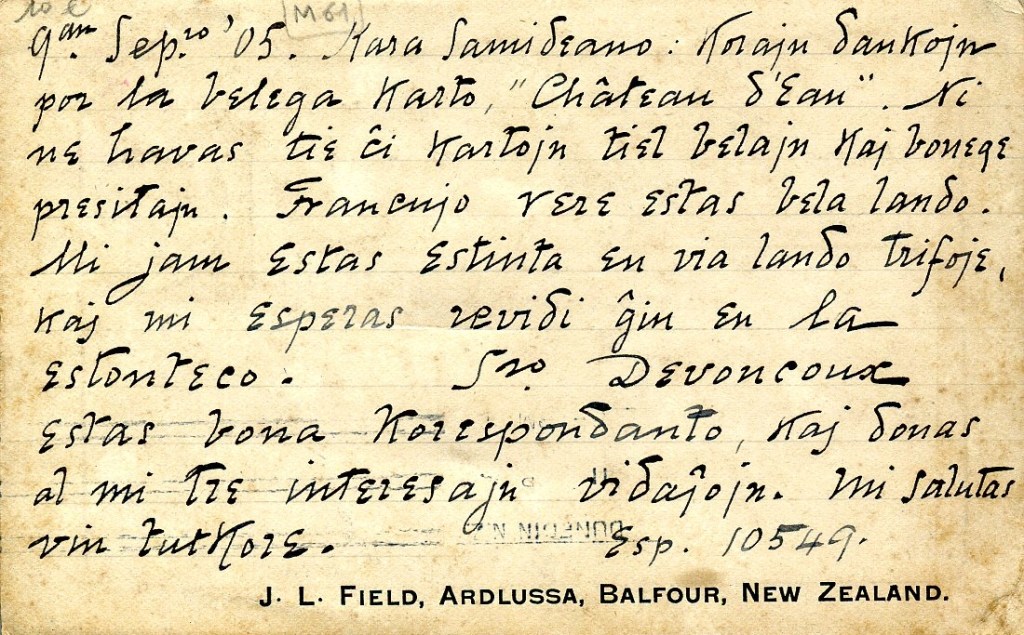 M61
9an. Sepro '05. Kara Samideano: Korajn dankojn
por la belega Karto, "Château d'Eau". Ni
ne havas tie ĉi Kartojn tiel belajn Kaj bonege
presitajn. Francujo vere estas bela lando.
Mi jam estas estinta en via lando trifoje,
Kaj mi esperas revidi ĝin en la
estonteco. Sro. Devoncoux
estas bona Korespondanto, Kaj donas
al mi tre interesajn vidaĵojn. Mi salutas
vin tutKore. Esp. 10549.
DUNEDIN N.Z
J. L. FIELD, ARDLUSSA, BALFOUR, NEW ZEALAND.